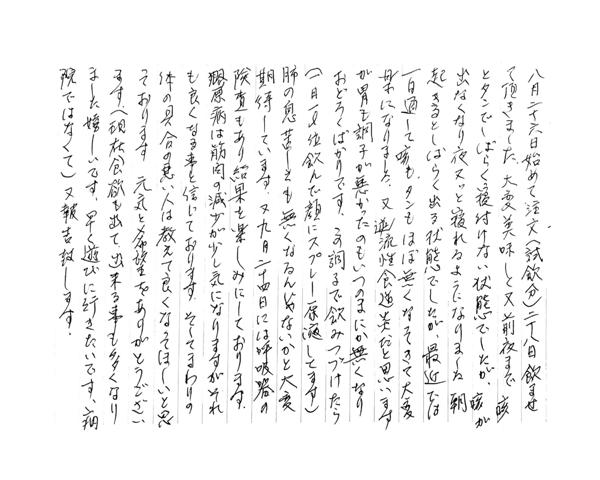 八月二十六日始めて注文(試飲分)二十八日飲ませ
て頂きました。大変美味しと又前夜まで咳
とタンでしばらく寝付けない状態でしたが、咳が
出なくなり夜スッと寝れるようになりました 朝
起きるとしばらく出る状態でしたが、最近では
一日通して咳もタンもほぼ無くなってきて大変
楽になりました。又逆流性食道炎だと思います
が胃も調子が悪かったのもいつのまにか無くなり
おどろくばかりです。この調子で飲みつづけたら
(一日1ℓ位飲んで顔にスプレー原液してます)
肺の息苦しさも無くなるんじゃないかと大変
期待しています。又九月二十四日には呼吸器の
検査もあり結果を楽しみにしております。
膠原病は筋肉の減少が少し気になりますがそれ
も良くなる事を信じております。そしてまわりの
体の具合の悪い人は教えて良くなってほしいと思
っております。元気と希望をありがとうござい
ます。(現在食欲も出て出来る事も多くなり
ました嬉しいです。早く遊びに行きたいです、病
院ではなくて)又報告致します。